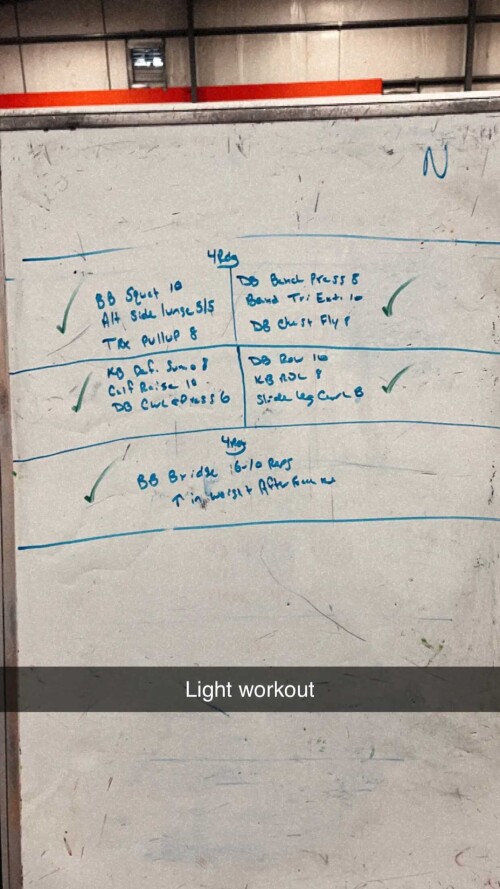 N
4 Rds
BB Squat 10
Alt Side lunge 5/5
TRX Pullup 8
DB Bench Press 8
Band Tri Ext. 10
DB Chest Fly 8
KB Def. Sumo 8
Calf Raise 10
DB Curl Press 6
DB Row 10
KB RDL 8
Slide Leg Curl 8
4
BB Bridge Reps
↑ in weight After
Light workout